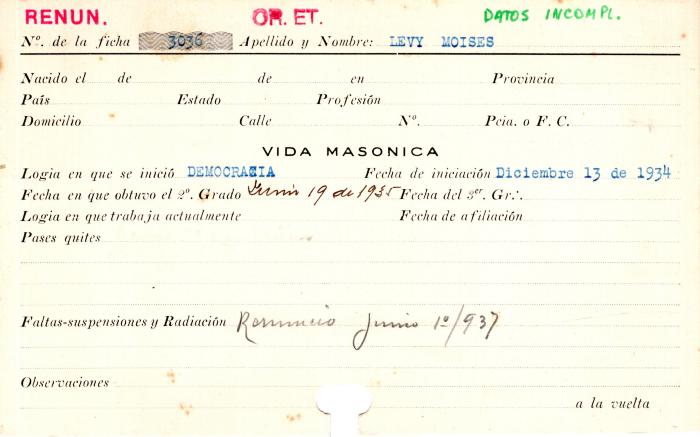 RENUN. OR. ET. DATOS INCOMPL.
Nº. de la ficha 3036 Apellido y Nombre: LEVY MOISES
Nacido el de de en Provincia
País Estado Profesión
Domicilio Calle Nº. Pcia. o F. C.
VIDA MASONICA
Logia en que se inició DEMOCRACIA Fecha de iniciación Diciembre 13 de 1934
Fecha en que obtuvo el 2º. Grado Junio 19 de 1935 Fecha del 3er. Gr∴
Logia en que trabaja actualmente Fecha de afiliación
Pases quites
Faltas-suspensiones y Radiación Renuncio Junio 1º/937
Observaciones
a la vuelta